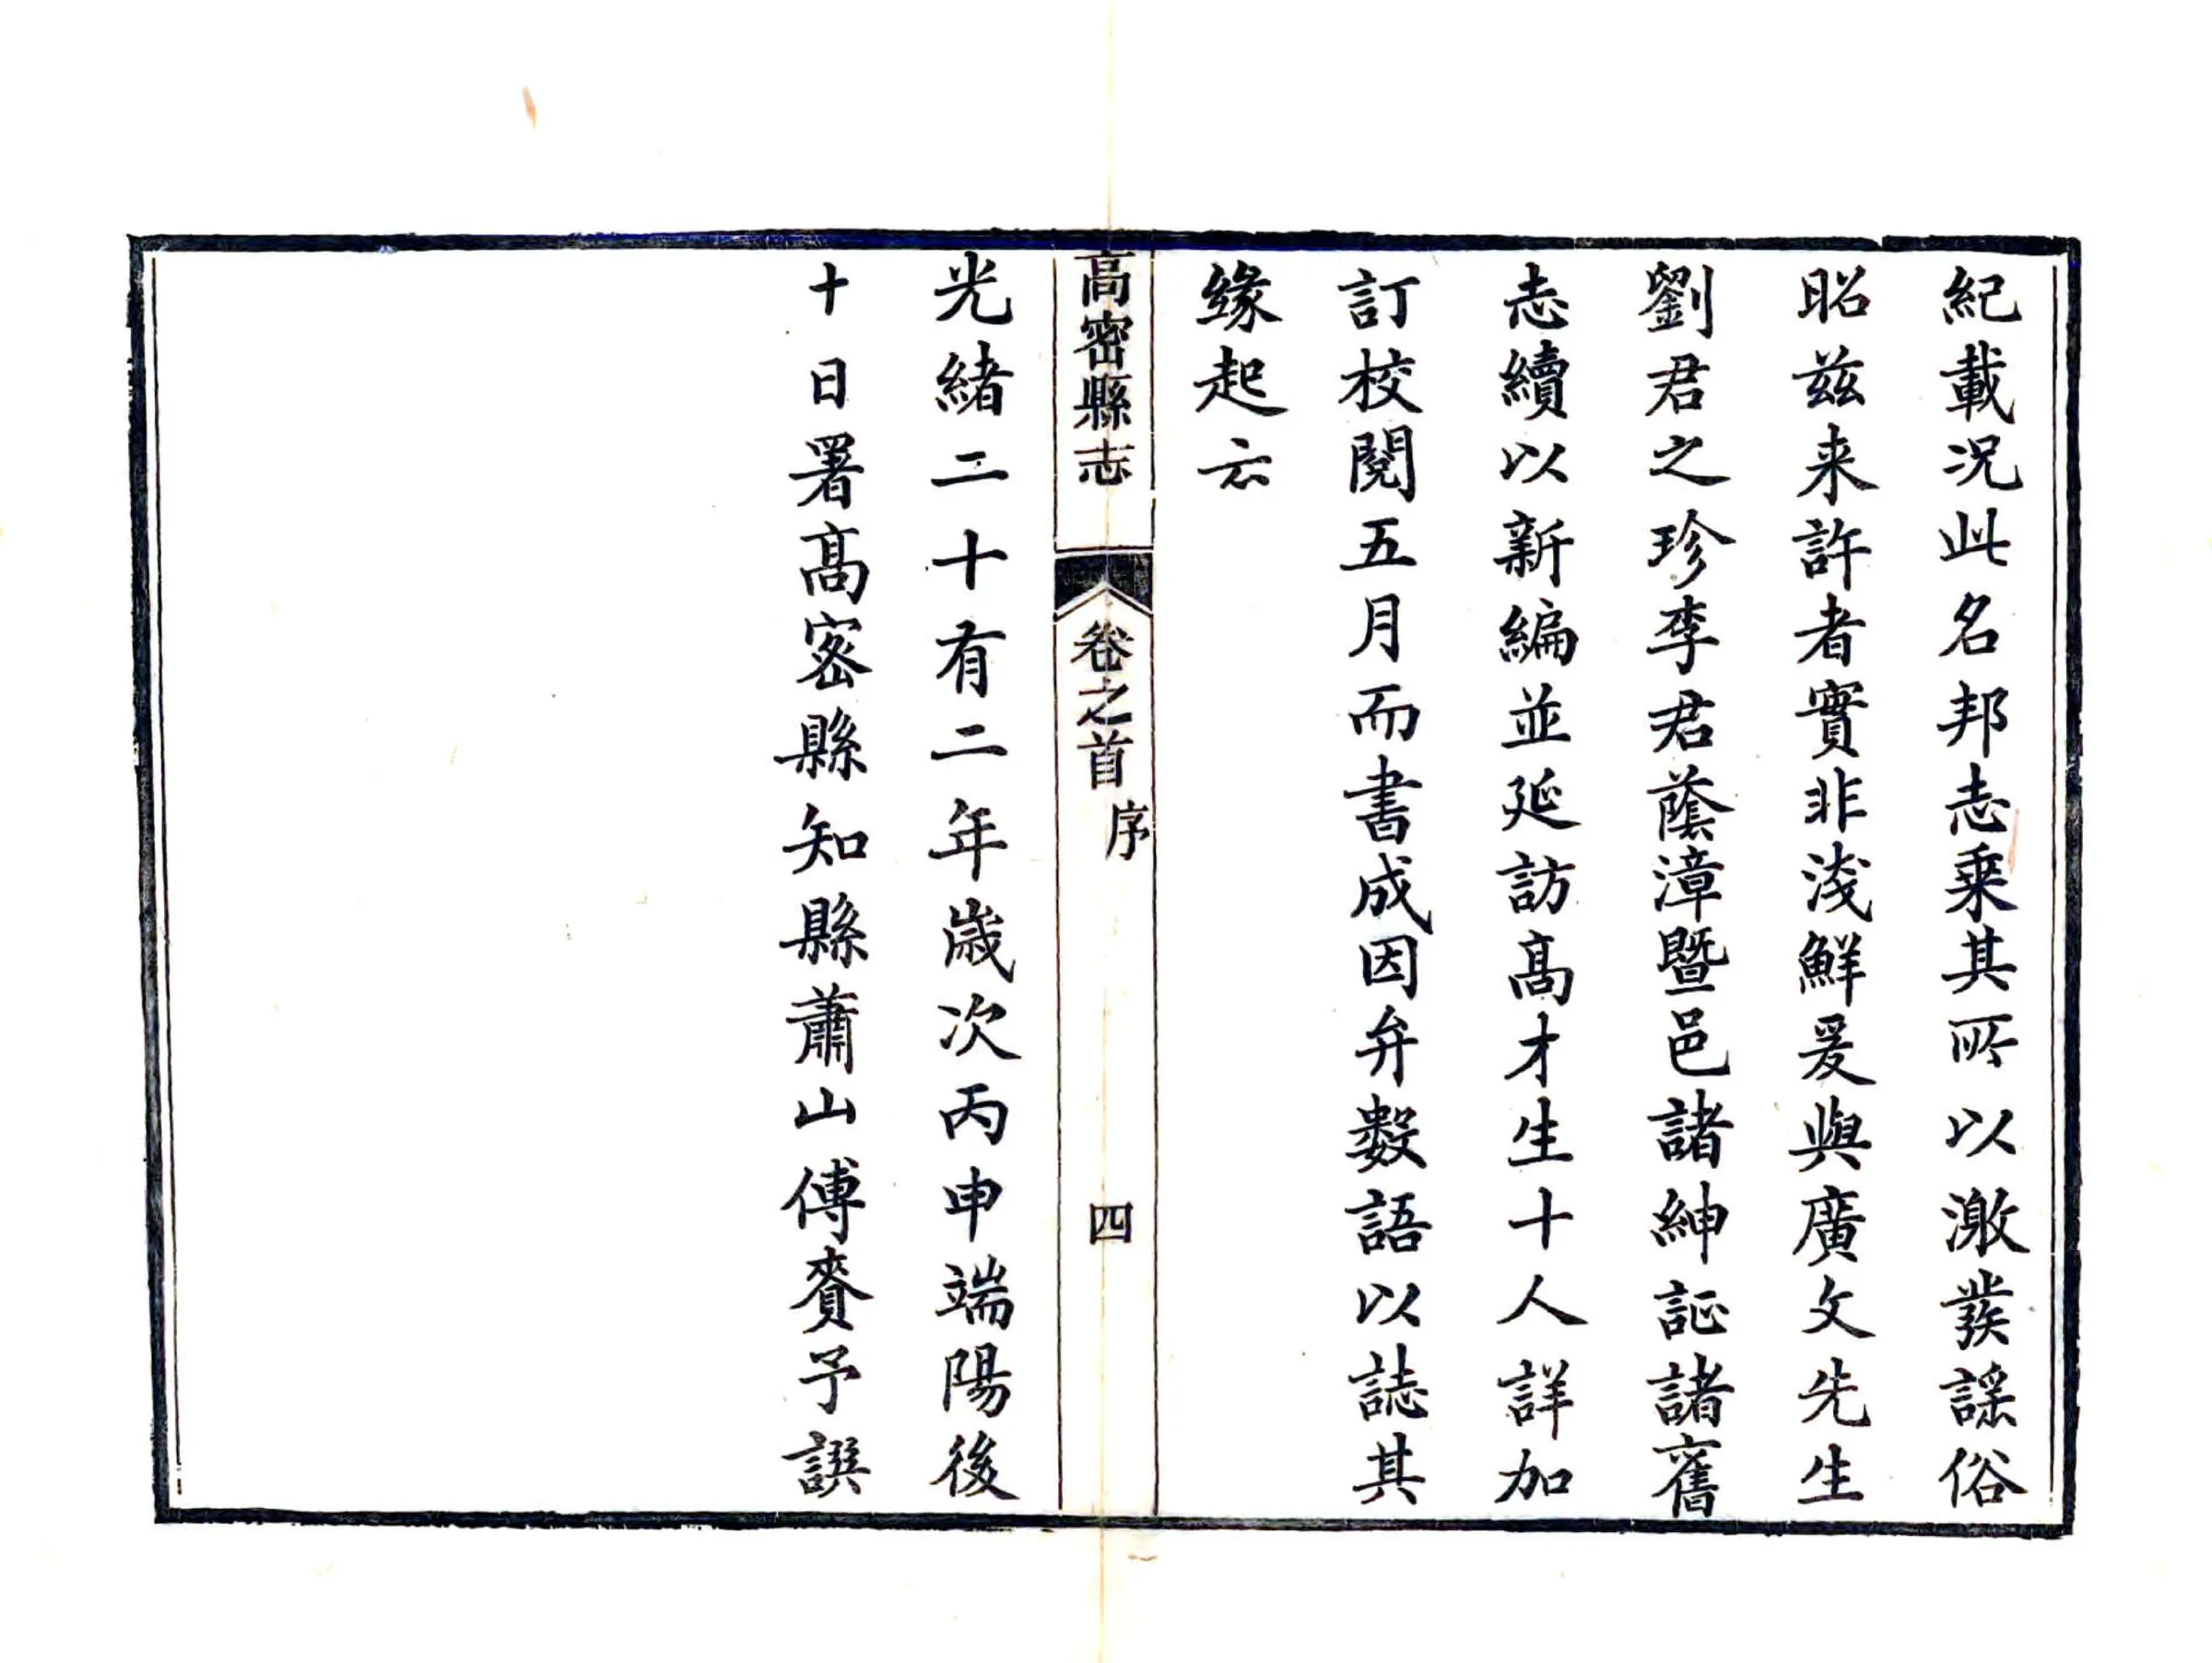 紀載况此名邦志乗其所以激發謡俗
昭兹来許者實非淺鮮爰與廣文先生
劉君之珍李君蔭漳暨邑諸紳証諸舊
志續以新編並延訪髙才生十人詳加
訂校閱五月而書成因弁數語以誌其
緣起云
高密縣志
卷之首
序
四
光緒二十有二年歲次丙申端陽後
十日署髙密縣知縣蕭山傅賚予譔